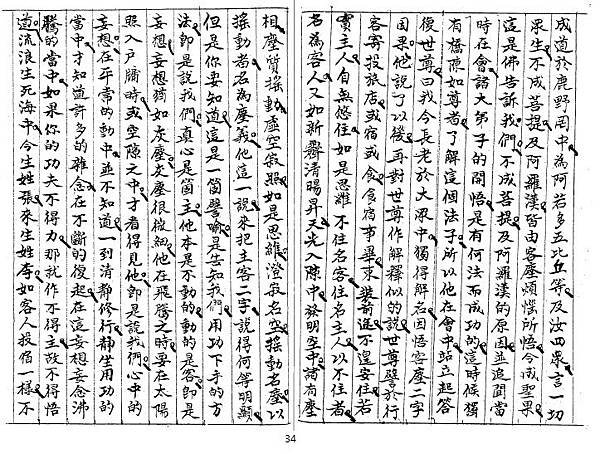 成道於鹿野園中為阿若多五比丘等及汝四眾言一切
眾生不成菩提及阿羅漢皆由客塵煩惱所悟今成聖果
這是佛告訴我們不成菩提及阿羅漢的原因並追問當
時在會諸大弟子的開悟是有何法而成功的這時候獨
有橋陳如尊者了解這個法子所以他在會中站立起答
復世尊曰我今長老於大眾中獨得解名因悟客塵二字
因果他說了以後再對世尊作解釋似的說世尊譬於行
客寄投旅店或宿或食食宿事畢束裝前進不遑安住若
實主人自無悠住如是思維不住名客住名主人以不住者
名為客人又如新霽清暘昇天光入隙中發明空中諸有塵
相塵質搖動虛空寂照如是思維澄寂名空搖動名塵以
搖動者名為塵義他這一說來把主客二字說得何等明顯
但是你要知道這是一箇譬喻是告知我們用功下手的方
法即是說我們真心是箇主他本是不動的動的是客即是
妄想妄想猶如灰塵灰塵很微細他在飛騰之時要在太陽
照入戶牖時或空隙之中才看得見他即是說我們心中的
妄想在平常的動中並不知道一到清靜修行靜坐用功的
當中才知道許多的雜念在不斷的復起在這妄想妄念沸
騰的當中如果你的功夫不得力那就作不得主故不得悟
道流浪生死海中今生姓張來生姓李如客人投宿一樣不
34